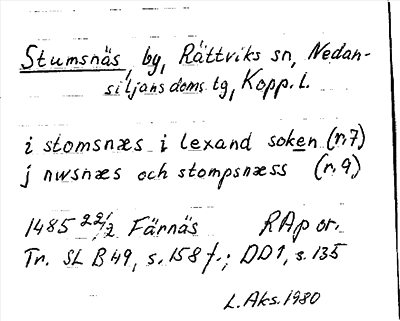 Stumsnäs, by, Rättviks sn, Nedan-
siljans doms. tg, Kopp. l.
i stomsnæs i lexand soken (r. 7)
j nwsnæs och stompsnæss (r. 9)
1485 22/2 Färnäs RAp or.
Tr. SL B 49, s. 158 f.; DD 1, s. 135
L. Aks. 1980